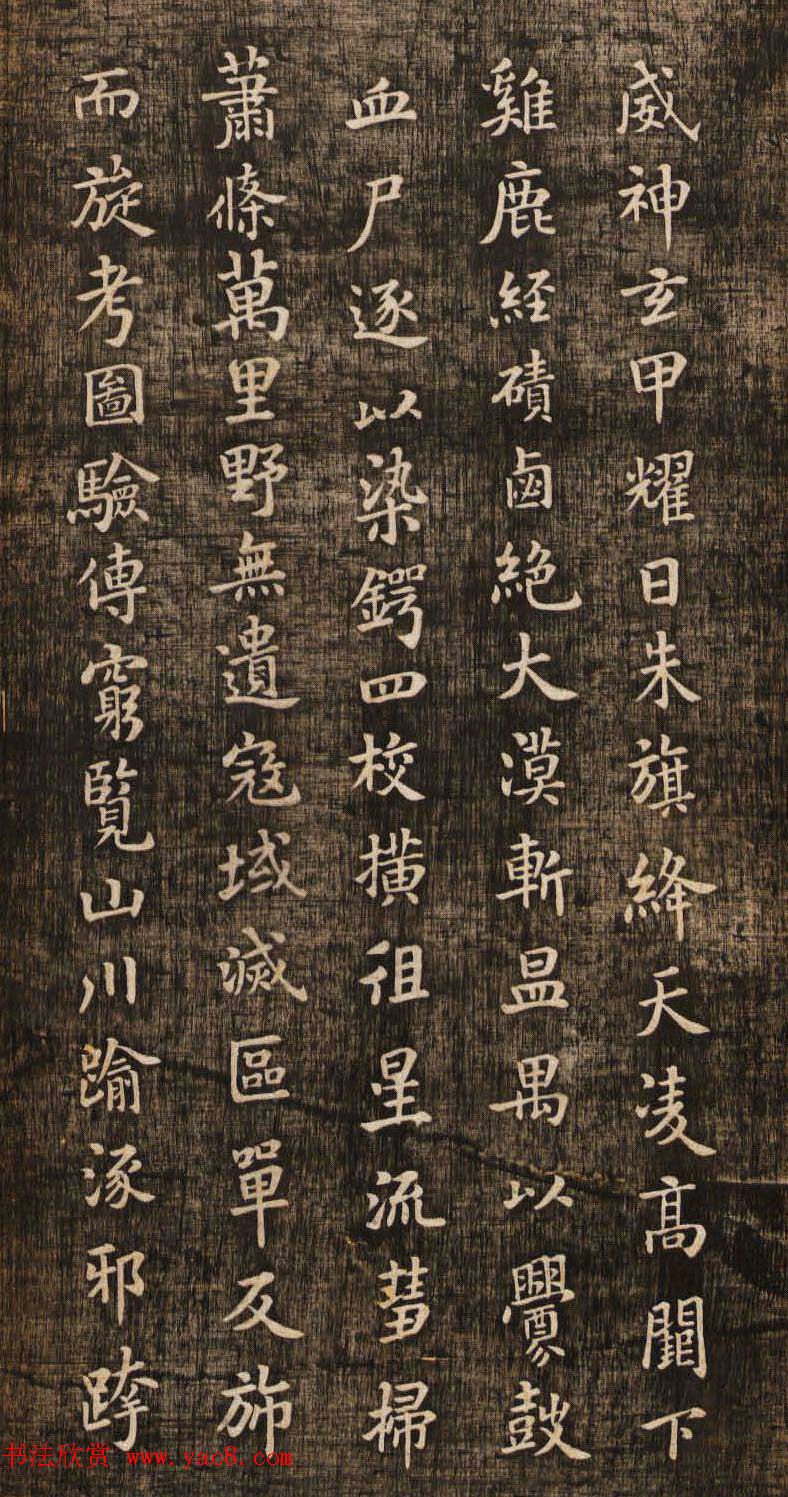 威神玄甲耀日朱旗絳天凌高闕下
雞鹿経磧鹵絶大漠斬昷禺以釁鼓
血尸逐以染鍔四校横徂星流彗掃
蕭條萬里野無遺寇域滅區單反斾
而旋考圖驗傳窮覽山川踰涿邪跨
书法欣赏 www.yac8.com